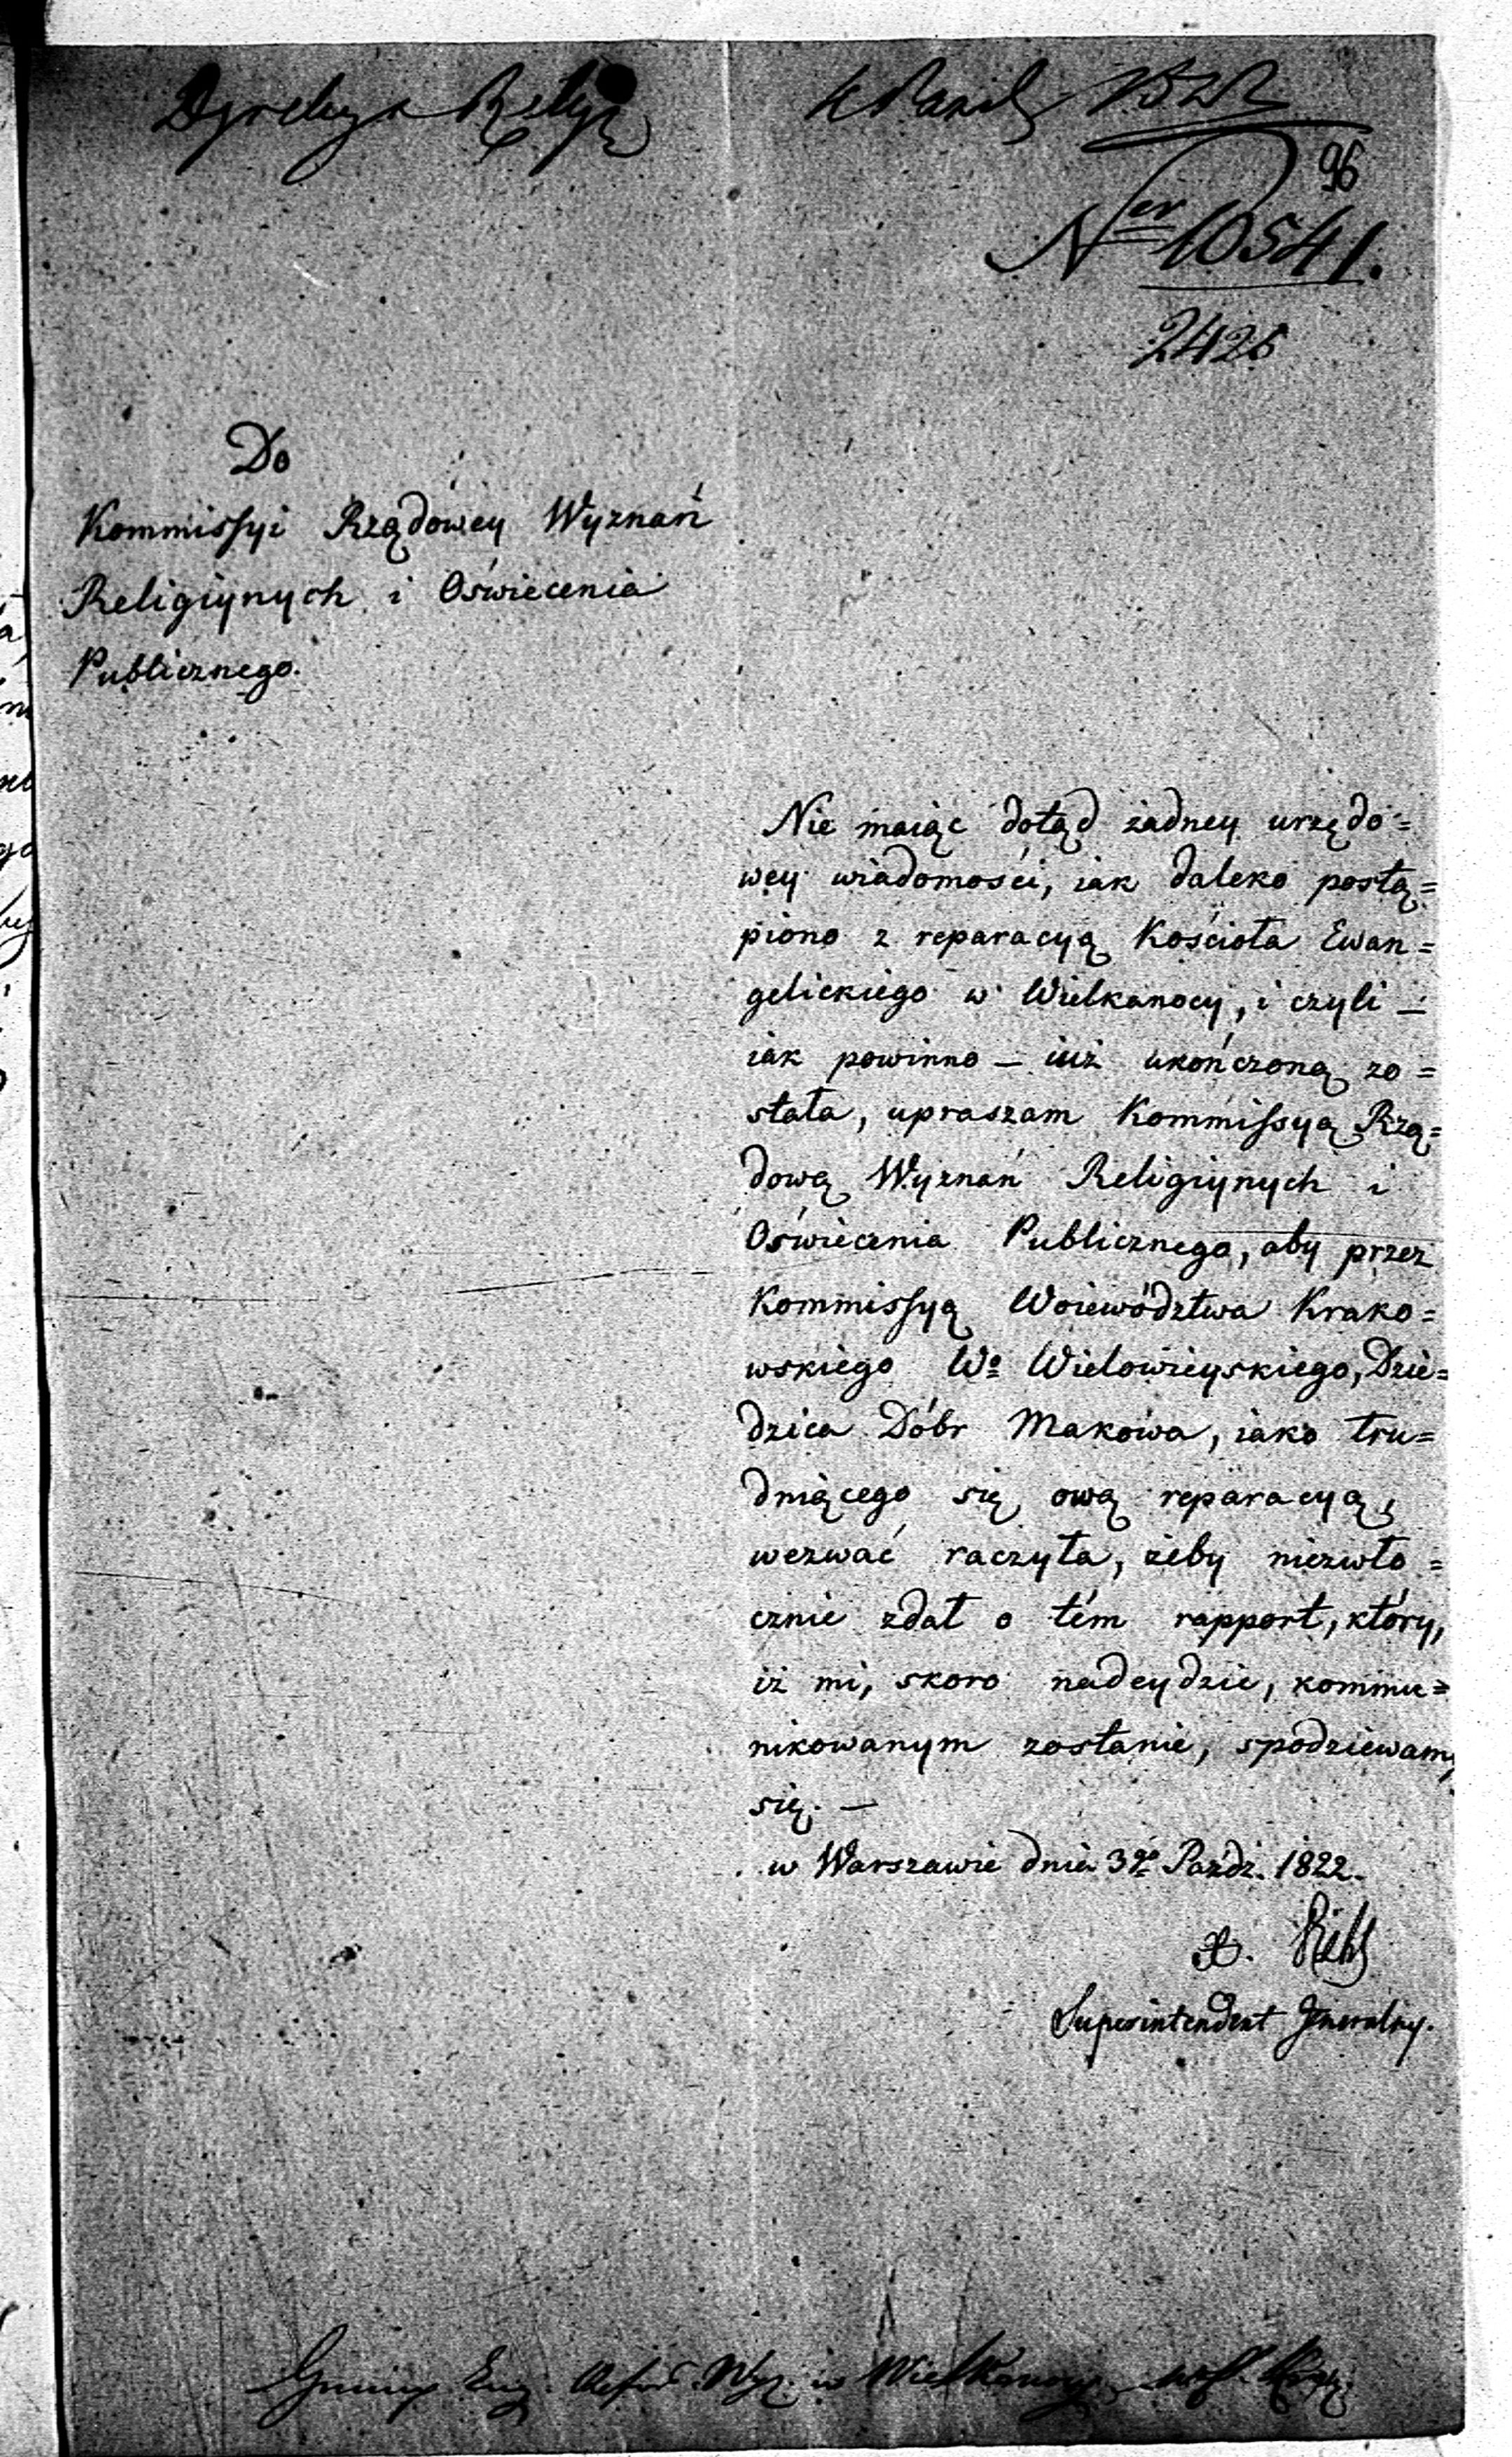 Dyrekcya Religij
96
Ner 10541.
2426
Do
Kommissyi Rządowey Wyznań
Religiynych i Oświecenia
Publicznego.
Nie maiąc dotąd żadney urzędo=
wey wiadomości, iak daleko postą=
piono z reparacyą Kościoła Ewan=
gelickiego w Wielkanocy, i czyli —
iak powinno — iuż ukończoną zo=
stała, upraszam Kommissyą Rzą=
dową Wyznań Religiynych i
Oświecenia Publicznego, aby przez
Kommissyą Woiewództwa Krako=
wskiego Wo Wielowieyskiego, Dzie=
dzica Dóbr Makowa, iako tru=
dniącego się ową reparacyą,
wezwać raczyła, żeby niezwło=
cznie zdał o tém rapport, który,
iż mi, skoro nadeydzie, kommu=
nikowanym zostanie, spodziewam
się. —
w Warszawie dnia 3go Paźdz. 1822.
X.
Superintendent Jeneralny.
Gminy Ewg. Refor. Wyz. w Wielkanocy